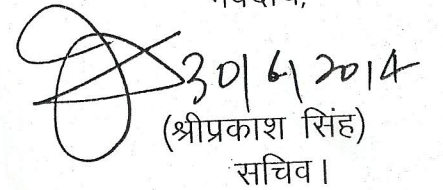 30/6/2014
(श्रीप्रकाश सिंह)
सचिव।